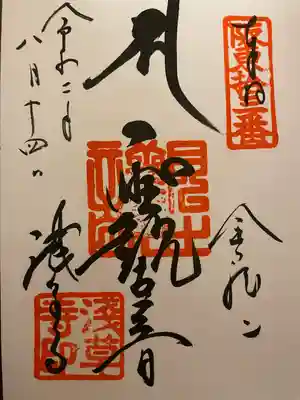 坂東拾三番
奉拝
金龍山
聖観世音
浅草寺
淺草寺印
令和二年
八月十四日